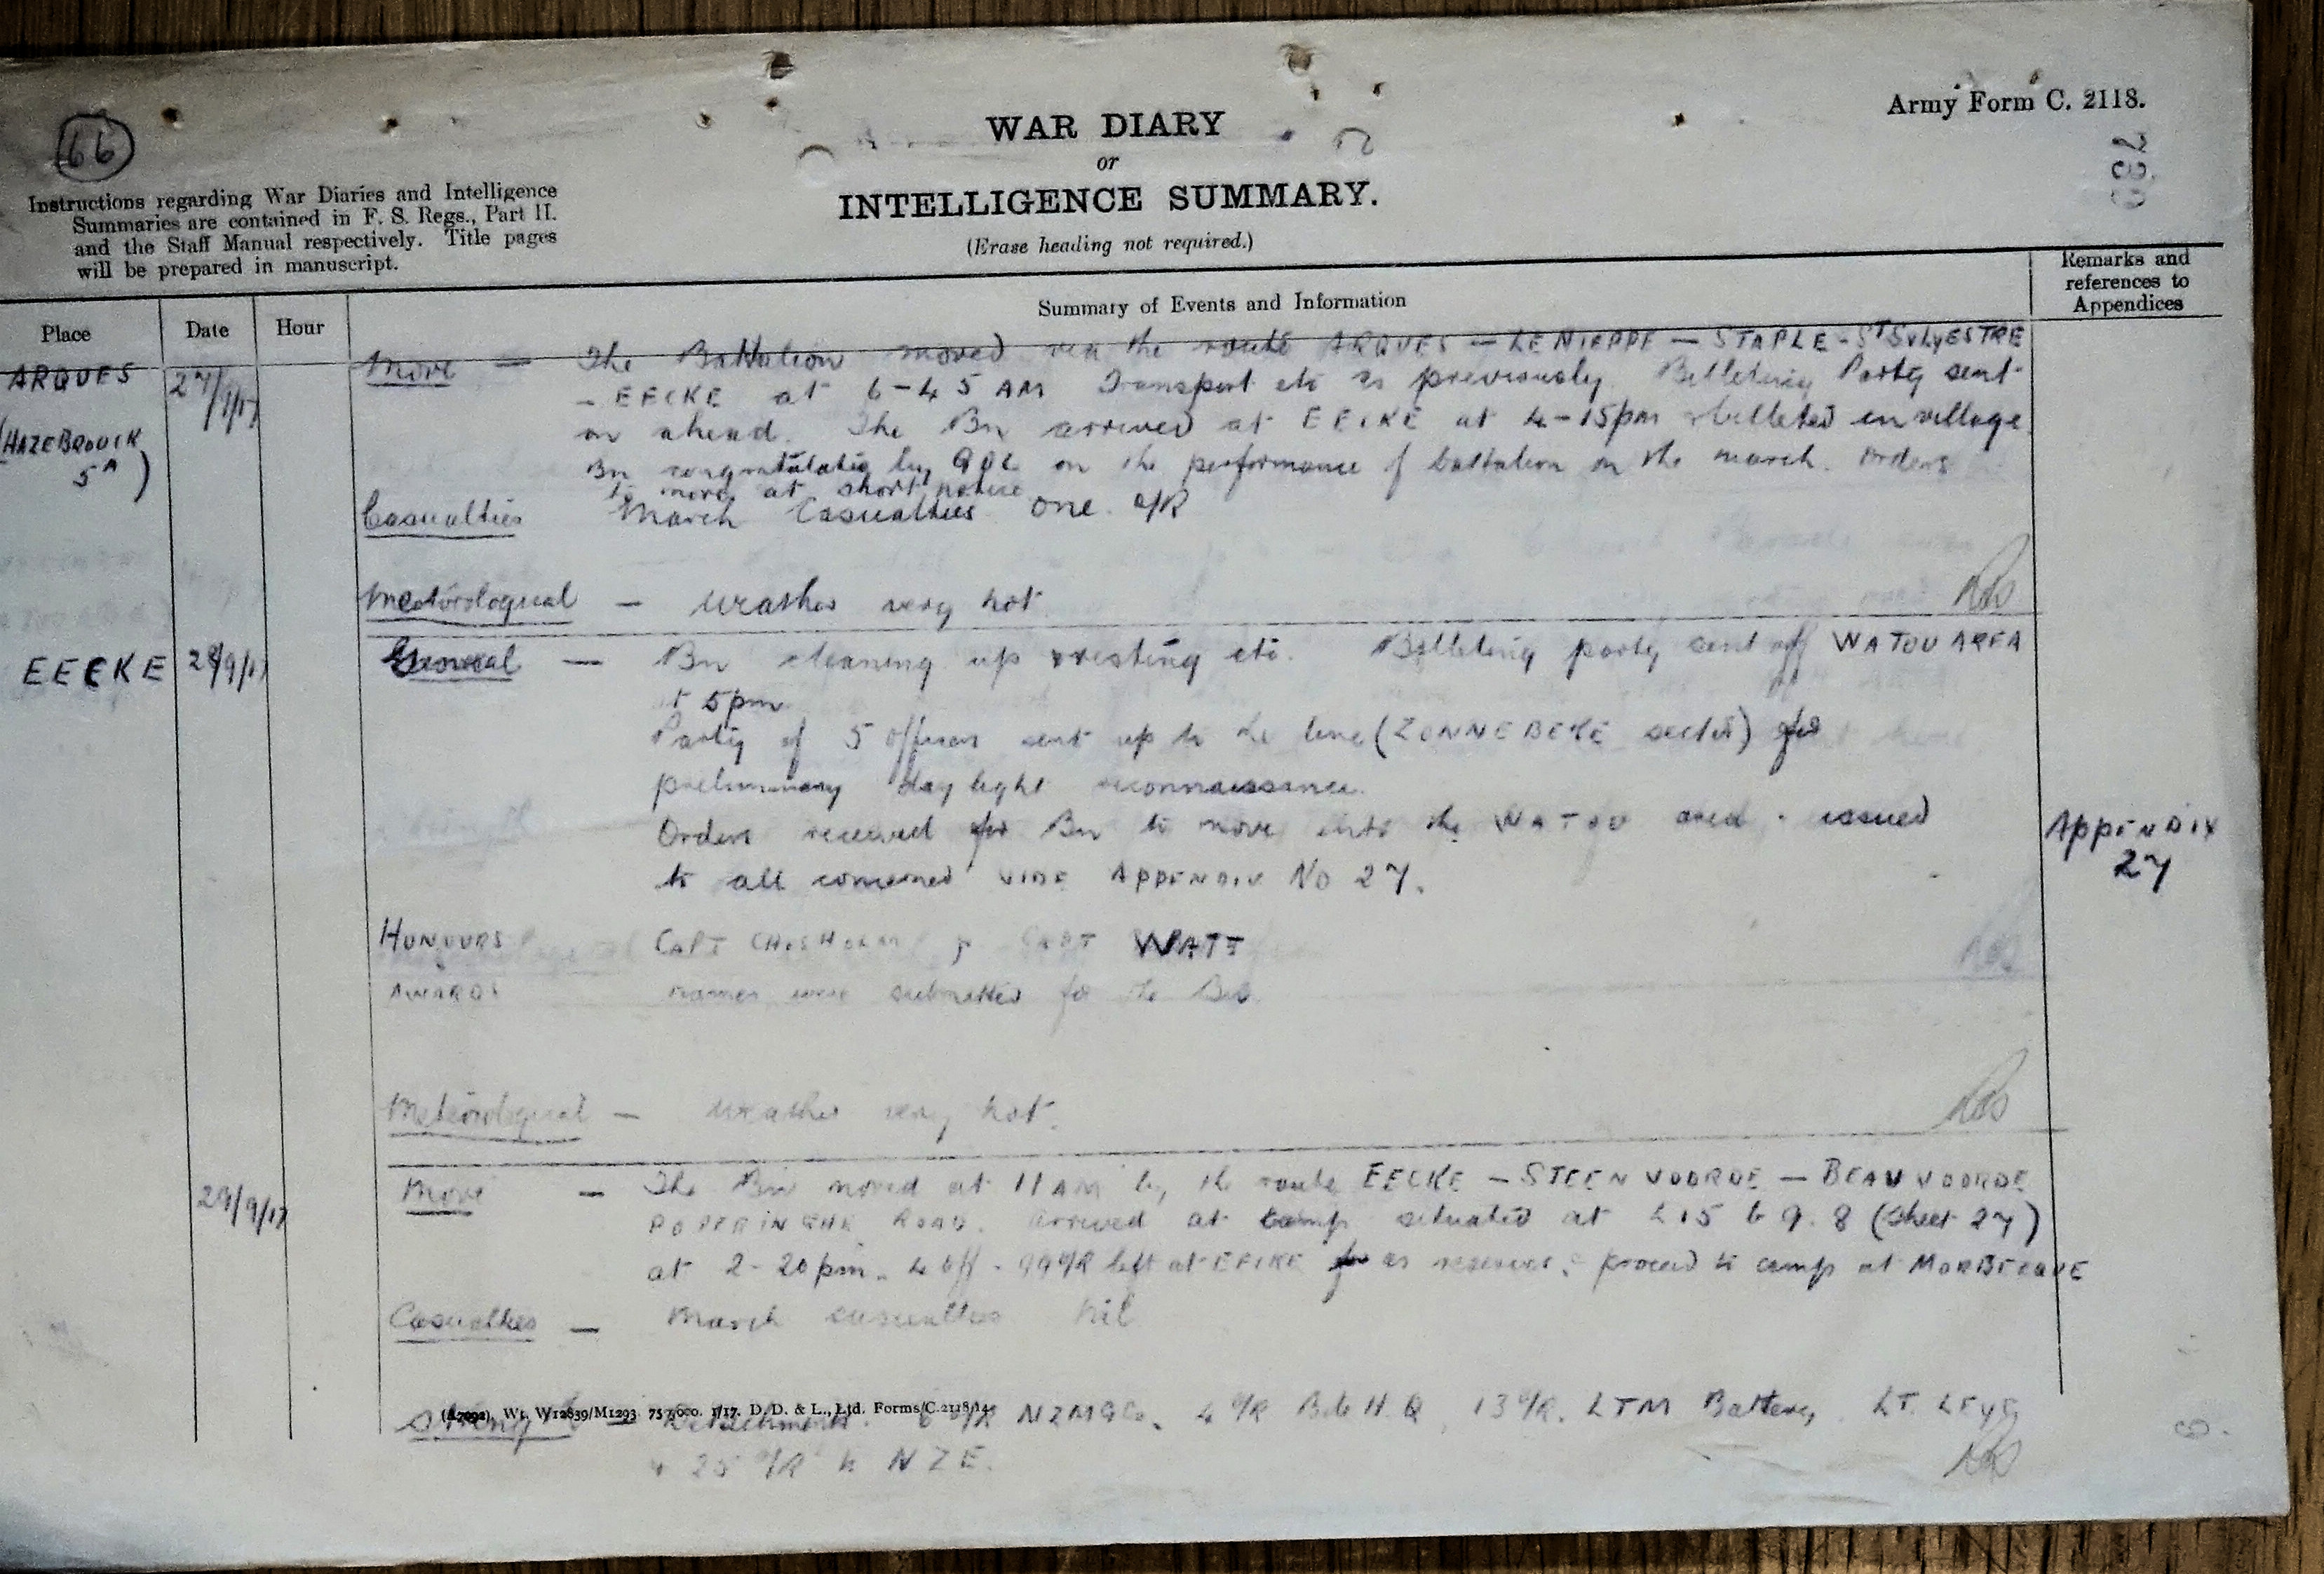 66
Army Form C. 2118.
WAR DIARY
or
INTELLIGENCE SUMMARY.
(Erase heading not required.)
Instructions regarding War Diaries and Intelligence
Summaries are contained in F. S. Regs., Part II.
and the Staff Manual respectively. Title pages
will be prepared in manuscript.
Place
Date
Hour
Summary of Events and Information
Remarks and
references to
Appendices
ARQUES
(HAZEBROUCK
5A)
27/9/17
Move — The Battalion moved via the route ARQUES — LE NIEPPE — STAPLE - St SYLVESTRE
- EECKE at 6-45 AM Transport etc as previously. Billeting Party sent
on ahead. The Bn arrived at EECKE at 4-15pm & billeted in village.
Bn by GOC on the performance of battalion on the march. Orders
to move at short notice
Casualties March Casualties one O/R
Meteorological — Weather very hot
EECKE
28/9/17
General — Bn cleaning up resting etc. Billeting party sent off WATOU AREA
at 5pm
Party of 5 officers sent up to the line (ZONNEBEKE sector) for
preliminary day light reconnaissance.
Orders received for Bn to move into the WATOU area issued
to all concerned VIDE APPENDIX No 27.
APPENDIX
27
HONOURS CAPT CHISHOLM CAPT WATT
AWARDS names were submitted for the
Meteorological — Weather very hot.
29/9/17
Move — The Bn moved at 11 AM by the route EECKE — STEENVOORDE — BEAUVOORDE
POPERINGHE ROAD. Arrived at camp situated at L15 b 9.8 (Sheet 27)
at 2-20pm. 4 off. 99 O/R left at EECKE as reserves proceed to camp at MORBECQUE
Casualties — March casualties Nil
Detachments. 6 O/R NZMGCo. 4 O/R Bde H.Q. 13 O/R. LTM Battery. LT.
25 O/R to NZE.
(A7092). Wt. W12839/M1293 75 1/17. D. D. & L., Ltd. Forms/C.2118/14.